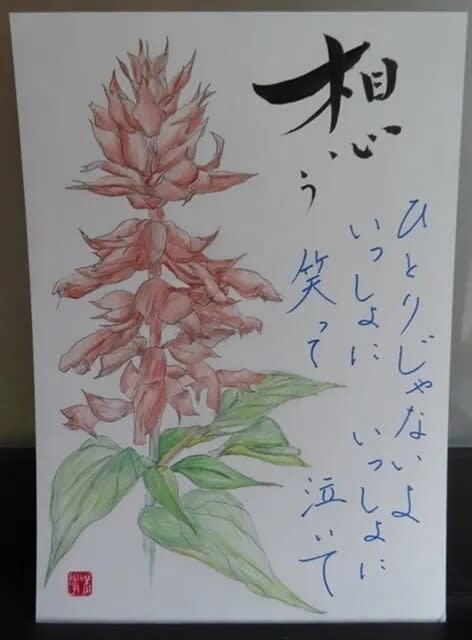 想う
ひとりじゃないよ
いっしょに いっしょに
笑って 泣いて